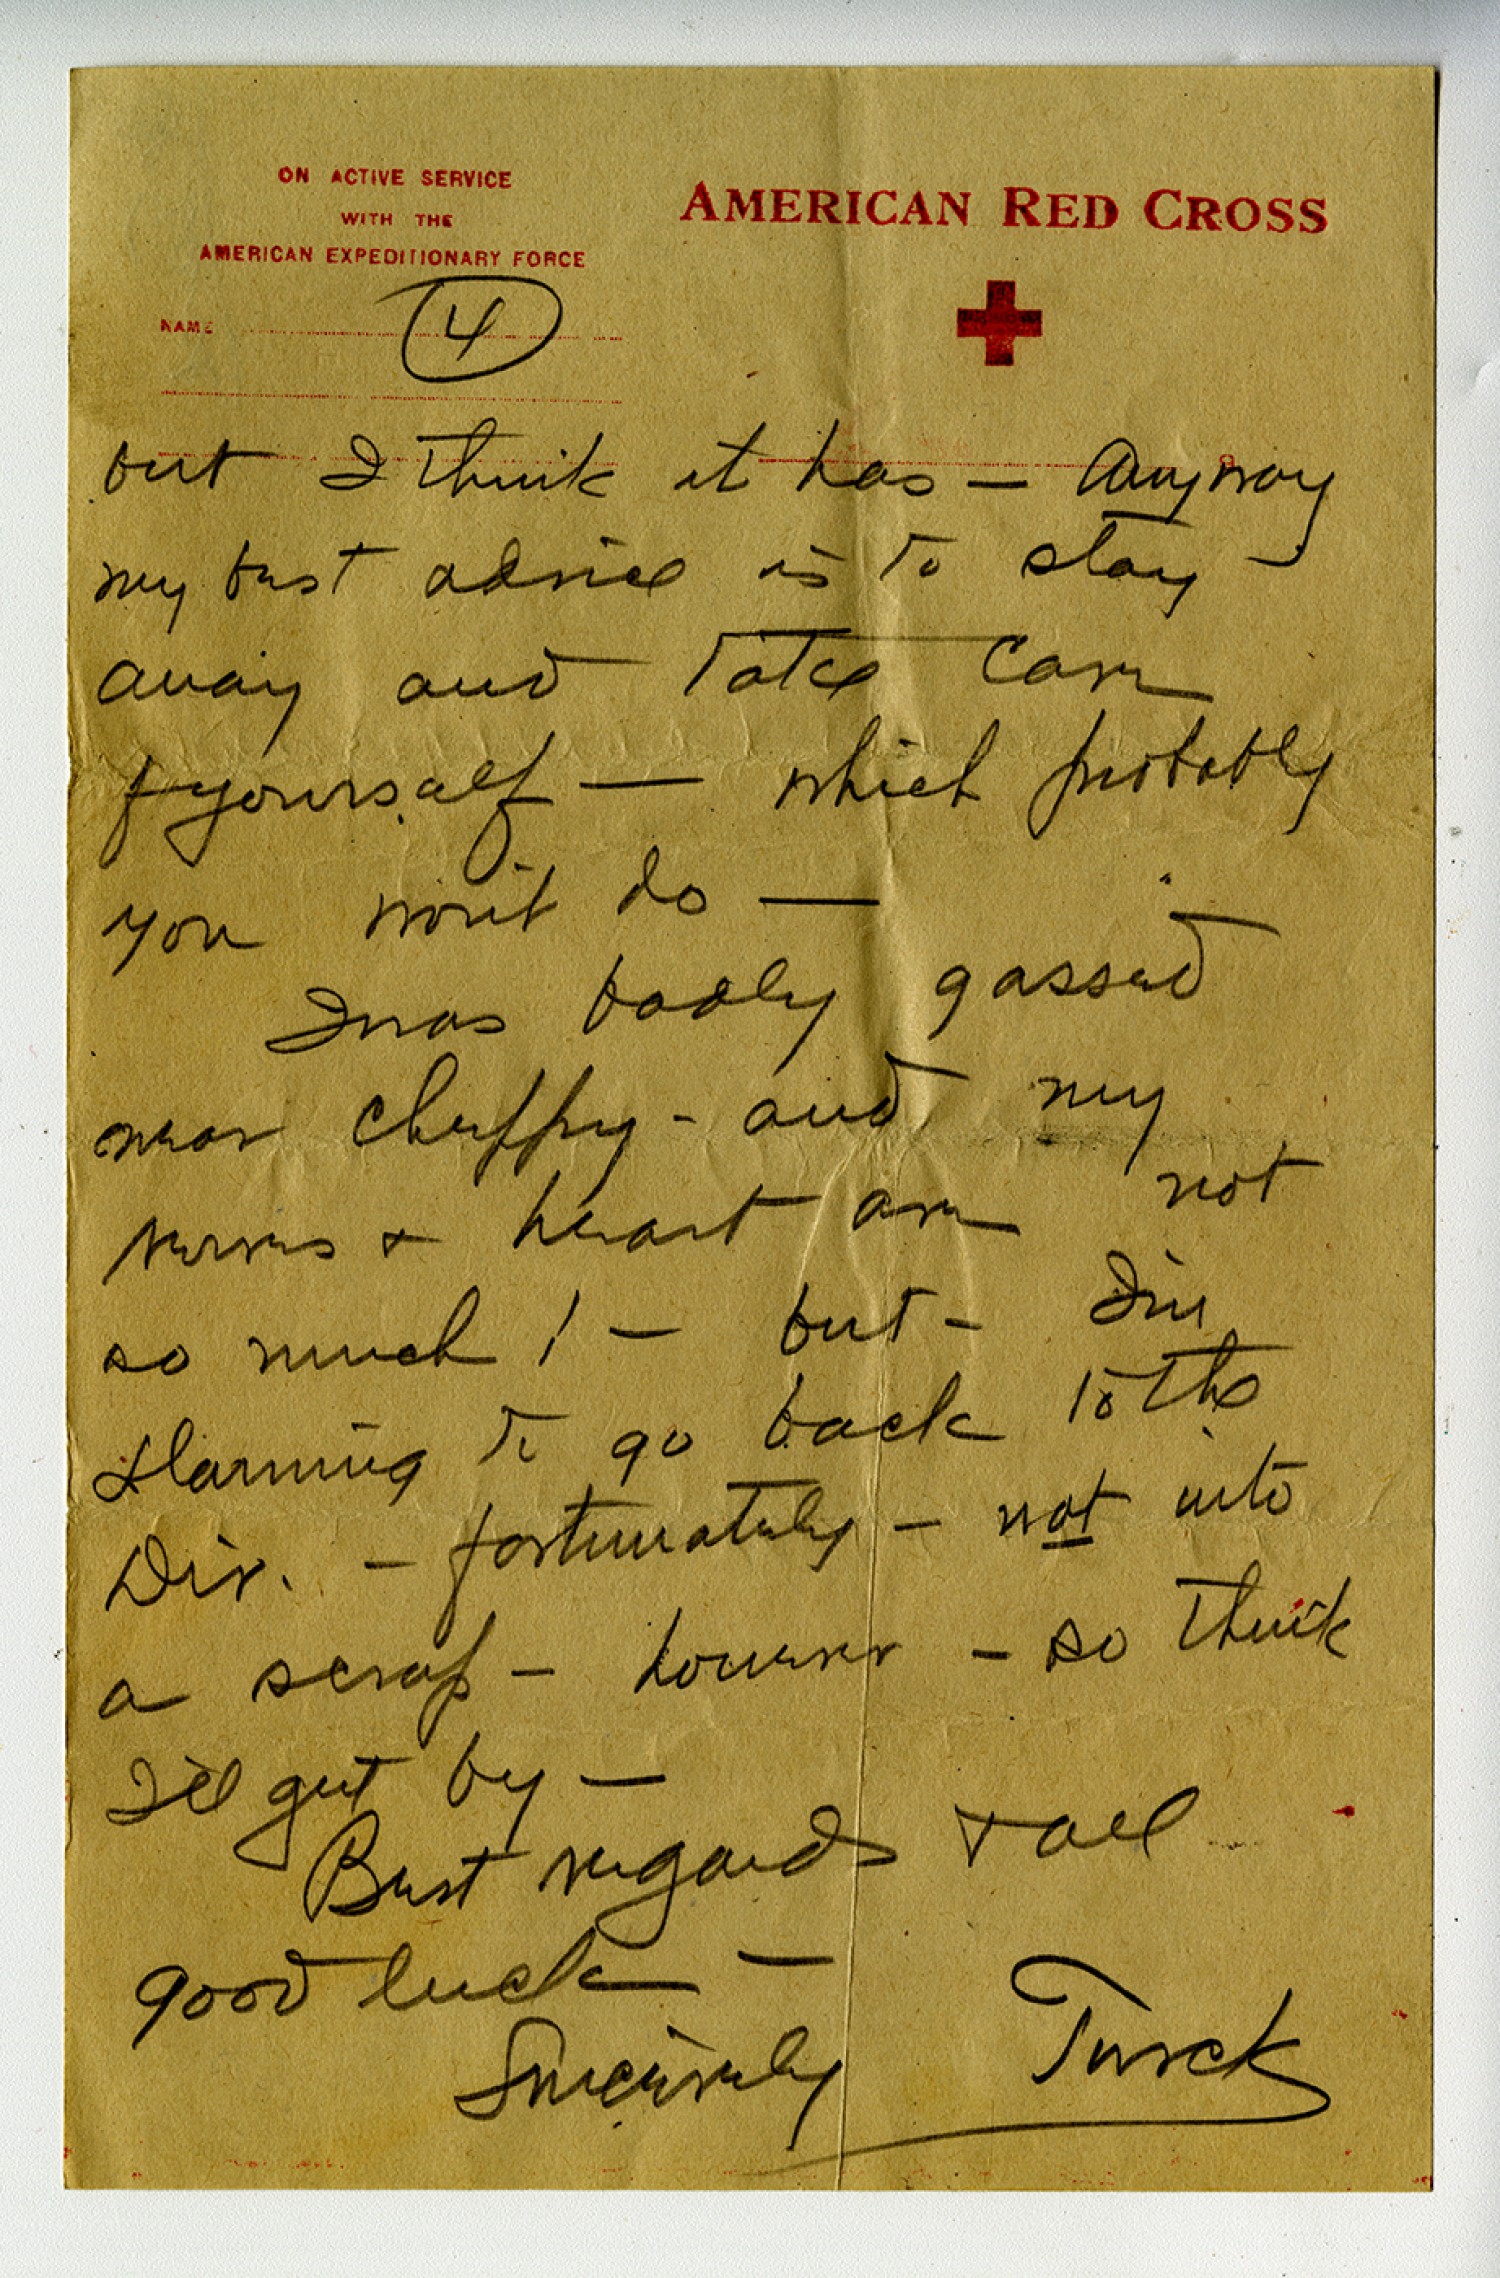 ON ACTIVE SERVICE
WITH THE
AMERICAN EXPEDITIONARY FORCE
AMERICAN RED CROSS
NAME
4
but I think it has — Anyway
my best advice is to stay
away and take care
of yourself — which probably
you won't do —
I was badly gassed
near Cheppy - and my
nerves & heart are not
so much! — but - I'm
starting to go back to the
Div. — fortunately — not into
a scrap — however — so think
I'll get by —
Best regards & all
good luck —
Sincerely Turck